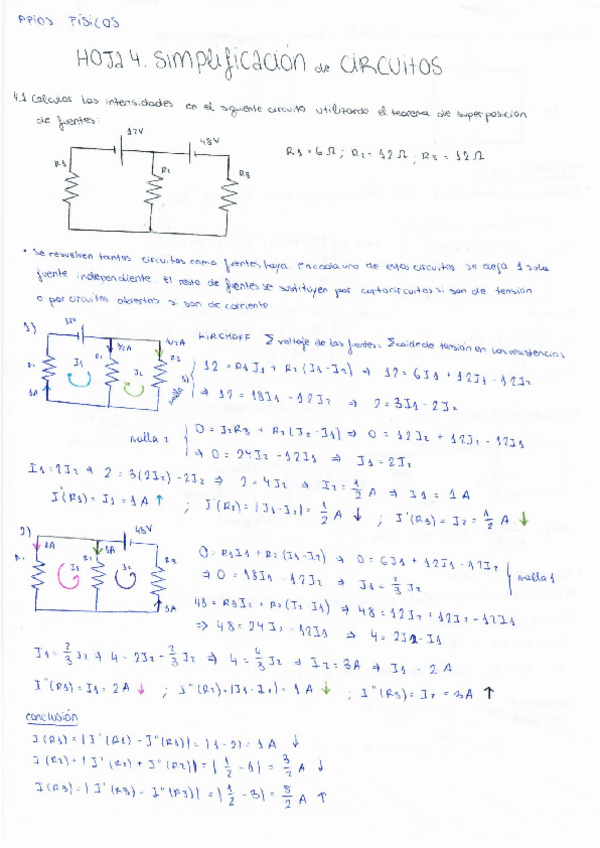 PPIOS FÍSICOS
HOJA 4. SIMPLIFICACIÓN de CIRCUITOS
4.1 Calcular las intensidades en el siguiente circuito utilizando el teorema de superposición
de fuentes:
12V
48V
R1
R2
R3
R1=6Ω; R2=12Ω; R3=12Ω
• Se resuelven tantos circuitos como fuentes haya. En cada uno de estos circuitos se deja 1 sola
fuente independiente. El resto de fuentes se sustituyen por cortocircuitos si son de tensión
o por circuitos abiertos si son de corriente.
1)
12V
1/2A
1/2A
R1
R2
R3
I1
I2
1A
KIRCHOFF Σ voltaje de las fuentes = Σ caídas de tensión en las resistencias
malla 1
12 = R1I1 + R2(I1-I2) ⇒ 12 = 6I1 + 12I1 - 12I2
⇒ 12 = 18I1 - 12I2 ⇒ 2 = 3I1 - 2I2
malla 2
0 = I2R3 + R2(I2-I1) ⇒ 0 = 12I2 + 12I2 - 12I1
⇒ 0 = 24I2 - 12I1 ⇒ I1 = 2I2
I1 = 2I2 ⇒ 2 = 3(2I2) - 2I2 ⇒ 2 = 4I2 ⇒ I2 = 1/2 A ⇒ I1 = 1A
I'(R1) = I1 = 1A ↑ ; I'(R2) = |I1-I2| = 1/2 A ↓ ; I'(R3) = I2 = 1/2 A ↓
2)
48V
2A
1A
R1
R2
R3
I1
I2
3A
0 = R1I1 + R2(I1-I2) ⇒ 0 = 6I1 + 12I1 - 12I2
⇒ 0 = 18I1 - 12I2 ⇒ I1 = 2/3 I2
malla 1
48 = R3I2 + R2(I2-I1) ⇒ 48 = 12I2 + 12I2 - 12I1
⇒ 48 = 24I2 - 12I1 ⇒ 4 = 2I2 - I1
I1 = 2/3 I2 ⇒ 4 = 2I2 - 2/3 I2 ⇒ 4 = 4/3 I2 ⇒ I2 = 3A ⇒ I1 = 2A
I''(R1) = I1 = 2A ↓ ; I''(R2) = |I1-I2| = 1A ↓ ; I''(R3) = I2 = 3A ↑
conclusión
I(R1) = |I'(R1) - I''(R1)| = |1-2| = 1A ↓
I(R2) = |I'(R2) + I''(R2)| = |1/2 - 1| = 3/2 A ↓
I(R3) = |I'(R3) - I''(R3)| = |1/2 - 3| = 5/2 A ↑